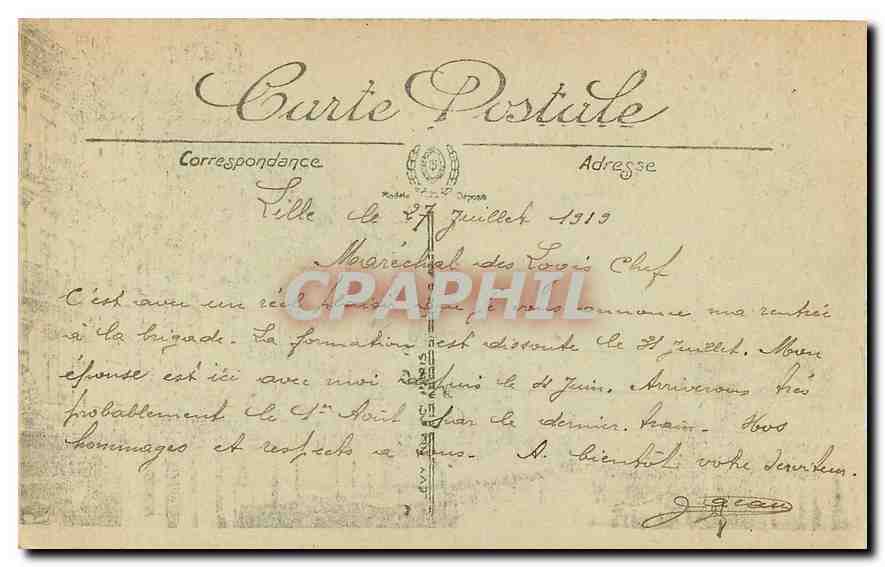 Carte Postale
Correspondance Adresse
Modèle Déposé
Lille le 27 Juillet 1919
Maréchal des Logis Chef
CPAPHIL
C'est avec un réel plaisir que je vous annonce ma rentrée
à la brigade. La formation est dissoute le 31 Juillet. Mon
épouse est ici avec moi depuis le Juin. Arriverons très
probablement le 1er Août par le dernier train. Nos
hommages et respects à tous. A bientôt votre serviteur.